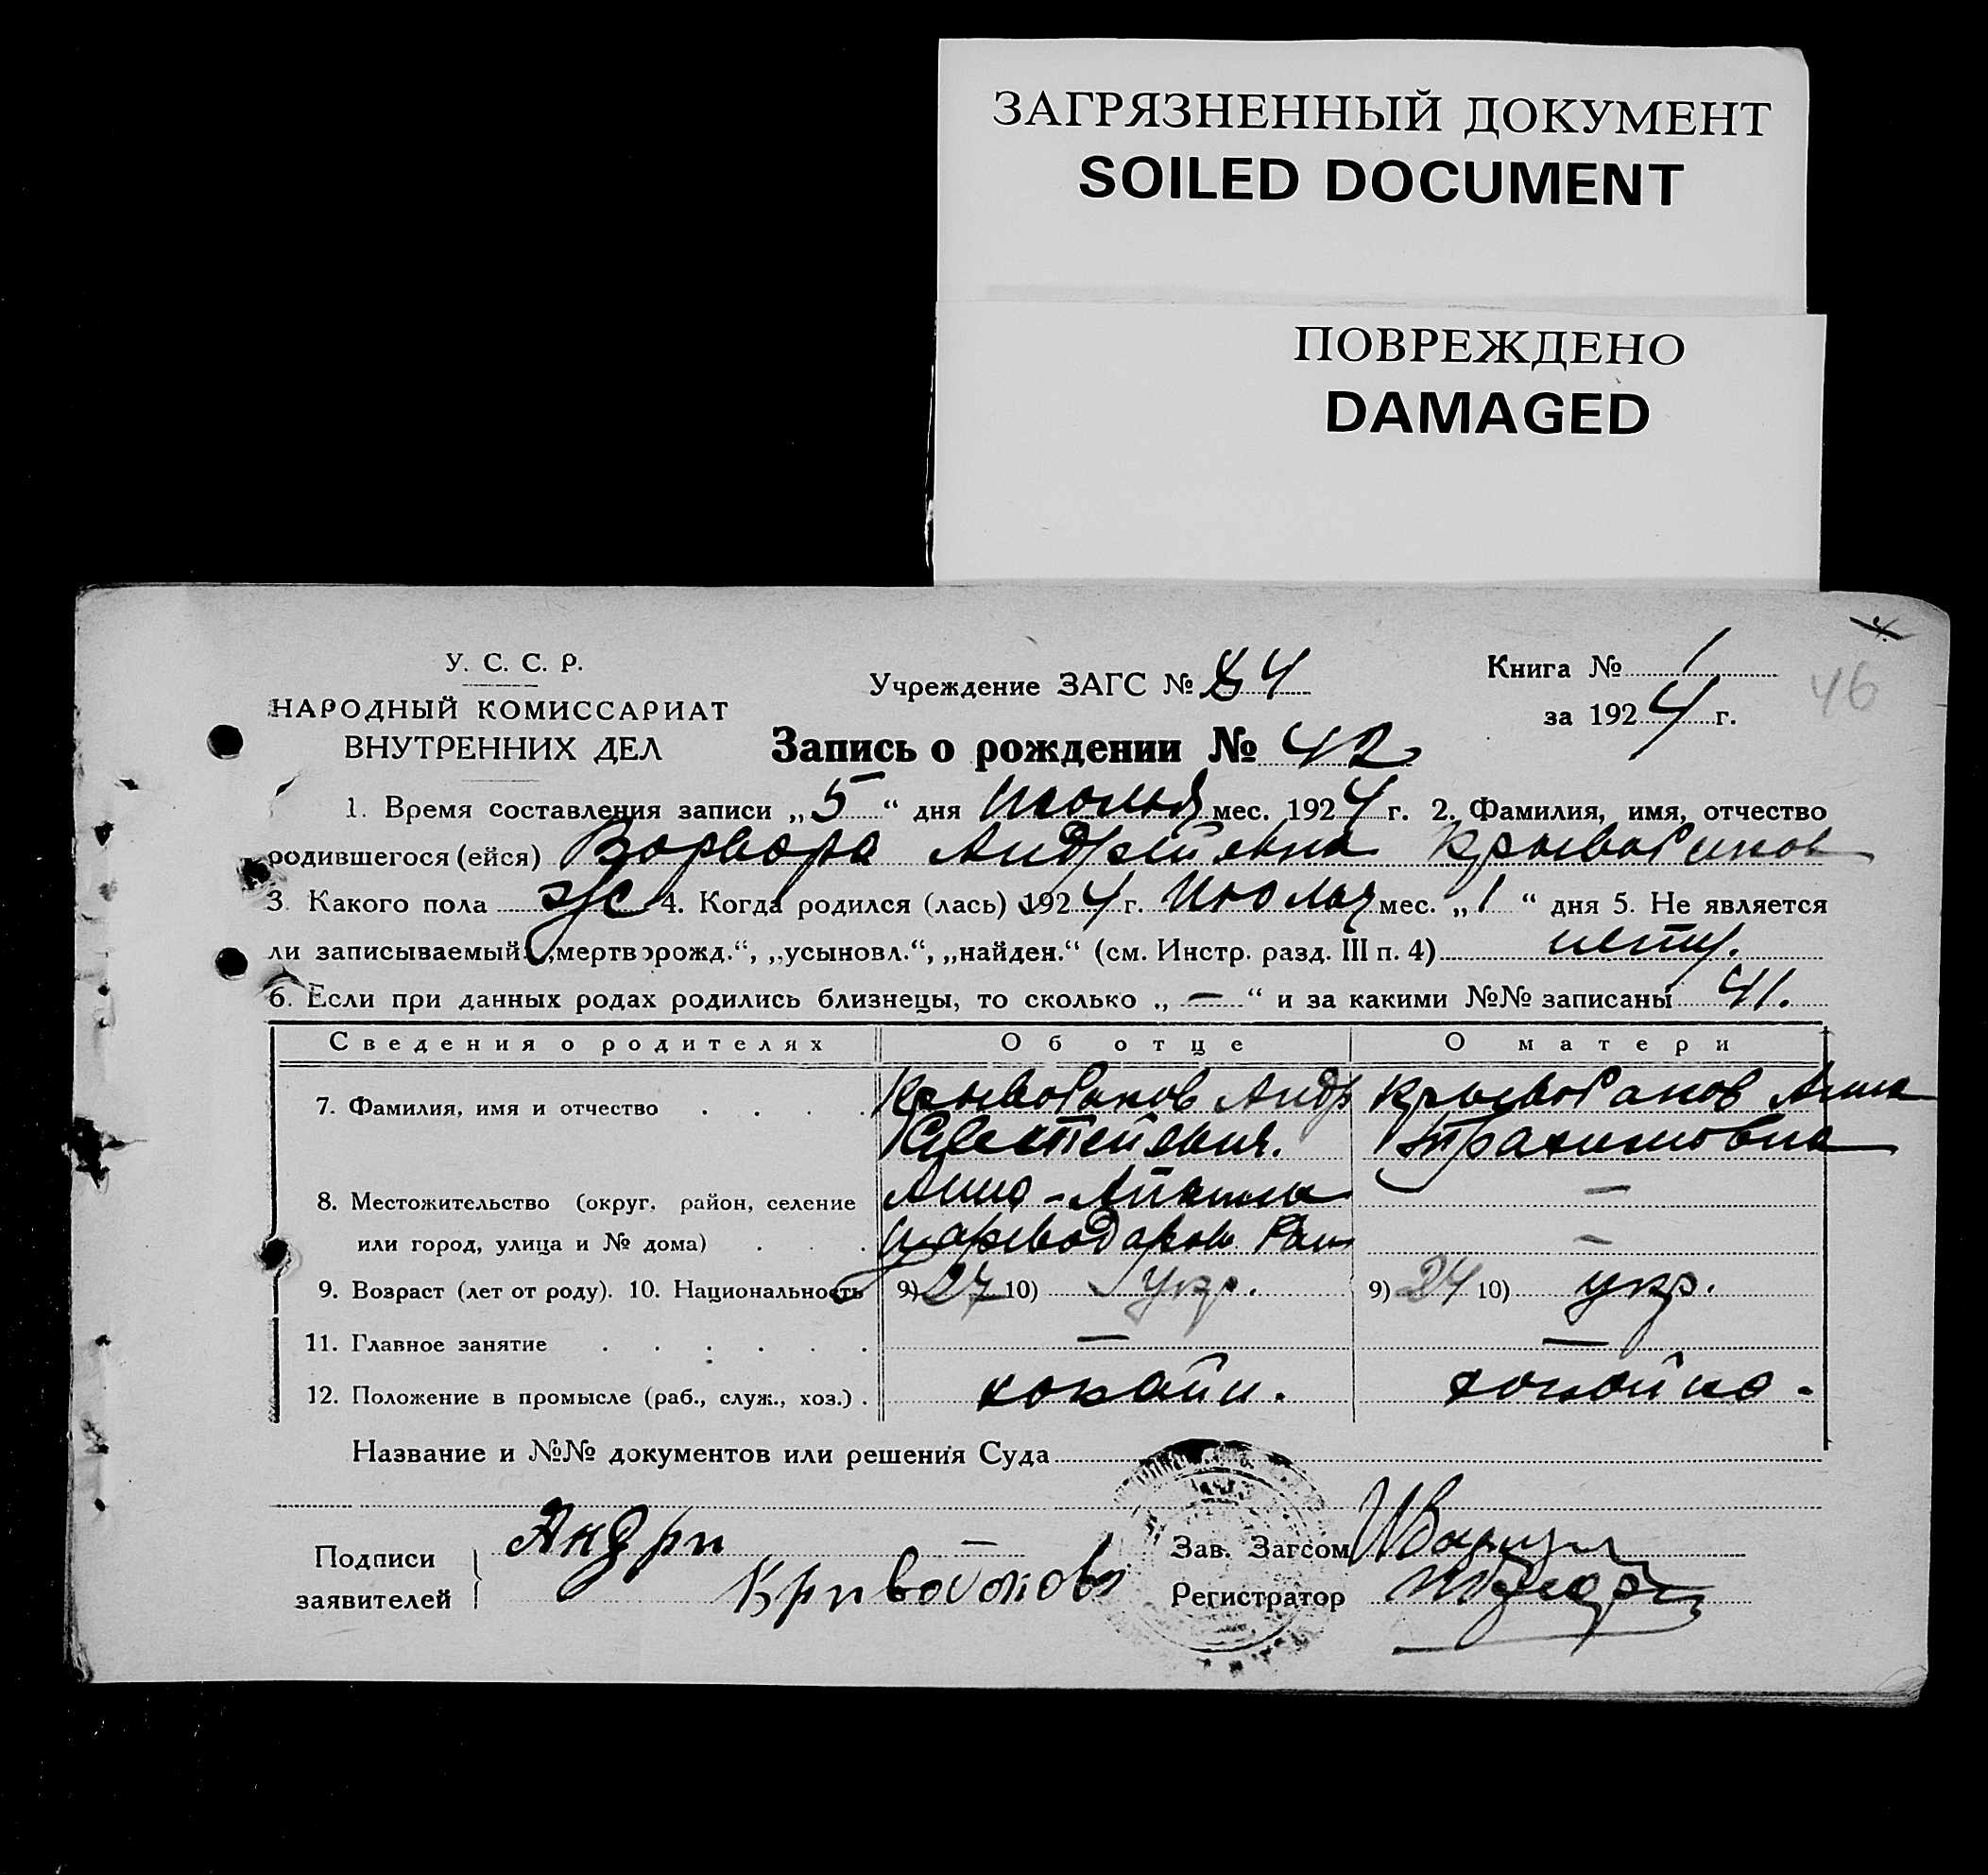 ЗАГРЯЗНЕННЫЙ ДОКУМЕНТ
SOILED DOCUMENT
ПОВРЕЖДЕНО
DAMAGED
У. С. С. Р.
НАРОДНЫЙ КОМИССАРИАТ
ВНУТРЕННИХ ДЕЛ
Учреждение ЗАГС № 84
Книга № 1
за 1924 г.
46
Запись о рождении № 42
1. Время составления записи „5“ дня Июлья мес. 1924 г. 2. Фамилия, имя, отчество
родившегося (ейся) Ворвора Андрейевна
3. Какого пола ж 4. Когда родился (лась) 1924 г. Июлья мес. „1“ дня 5. Не является
ли записываемый: „мерторожд.“, „усыновл.“, „найден.“ (см. Инстр. разд. III п. 4) нету.
6. Если при данных родах родились близнецы, то сколько „—“ и за какими №№ записаны 41.
Сведения о родителях Об отце О матери
7. Фамилия, имя и отчество Андр Анна
8. Местожительство (округ, район, селение Анно - —
или город, улица и № дома) —
9. Возраст (лет от роду). 10. Национальность 9) 27 10) укр. 9) 24 10) укр.
11. Главное занятие — —
12. Положение в промысле (раб., служ., хоз.)
Название и №№ документов или решения Суда
Подписи заявителей Андри —
Зав. Загсом
Регистратор